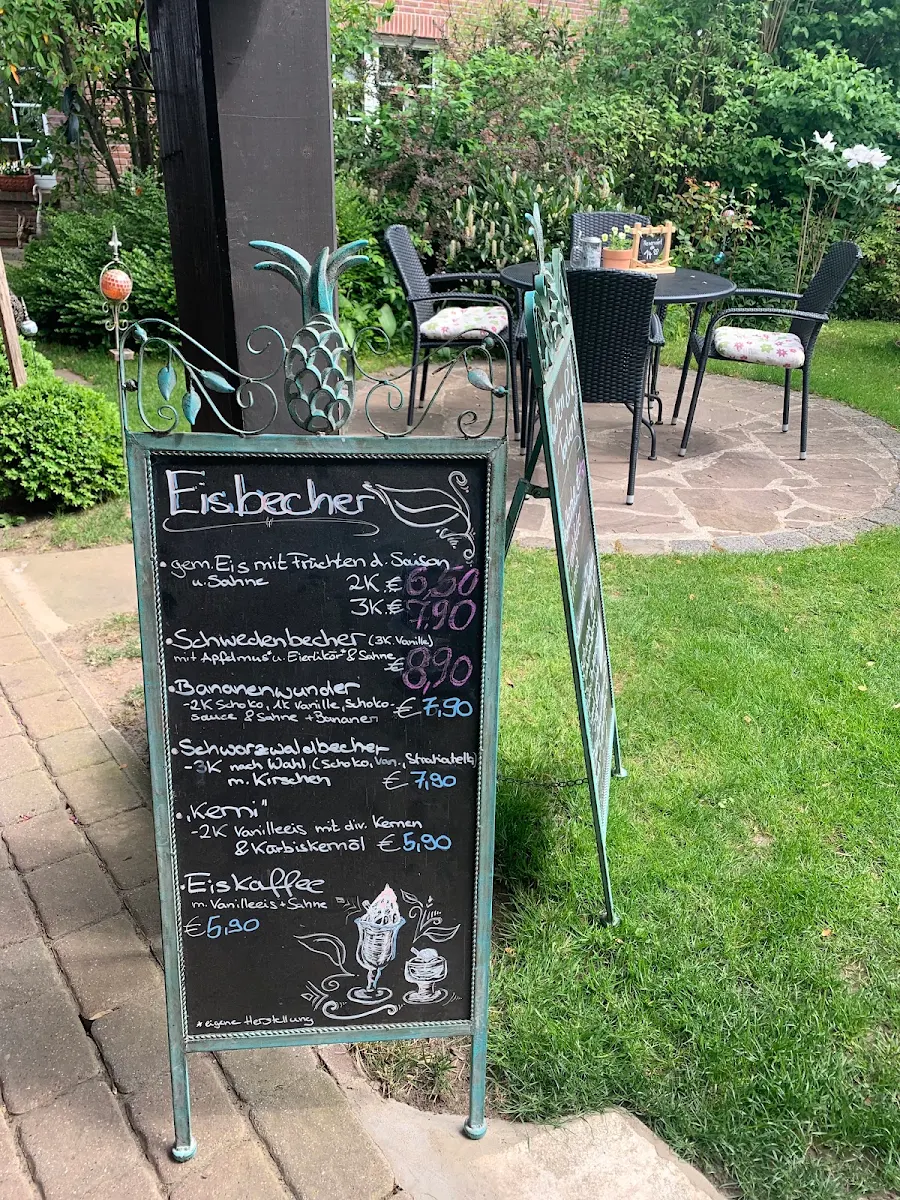 Eisbecher
• gem. Eis mit Früchten d. Saison
u. Sahne 2K € 6,50
3K € 7,90
• Schwedenbecher (3K. Vanille)
mit Apfelmus* u. Eierlikör* & Sahne
€ 8,90
• Bananenwunder
- 2K Schoko, 1K Vanille, Schoko-
sauce & Sahne + Bananen € 7,90
• Schwarzwaldbecher
- 3K nach Wahl, (Schoko, Van., Stratiatella)
m. Kirschen € 7,90
• „Kerni"
- 2K Vanilleeis mit div. Kernen
& Kürbiskernöl € 5,90
• Eiskaffee
m. Vanilleeis + Sahne
€ 5,90
* eigene Herstellung